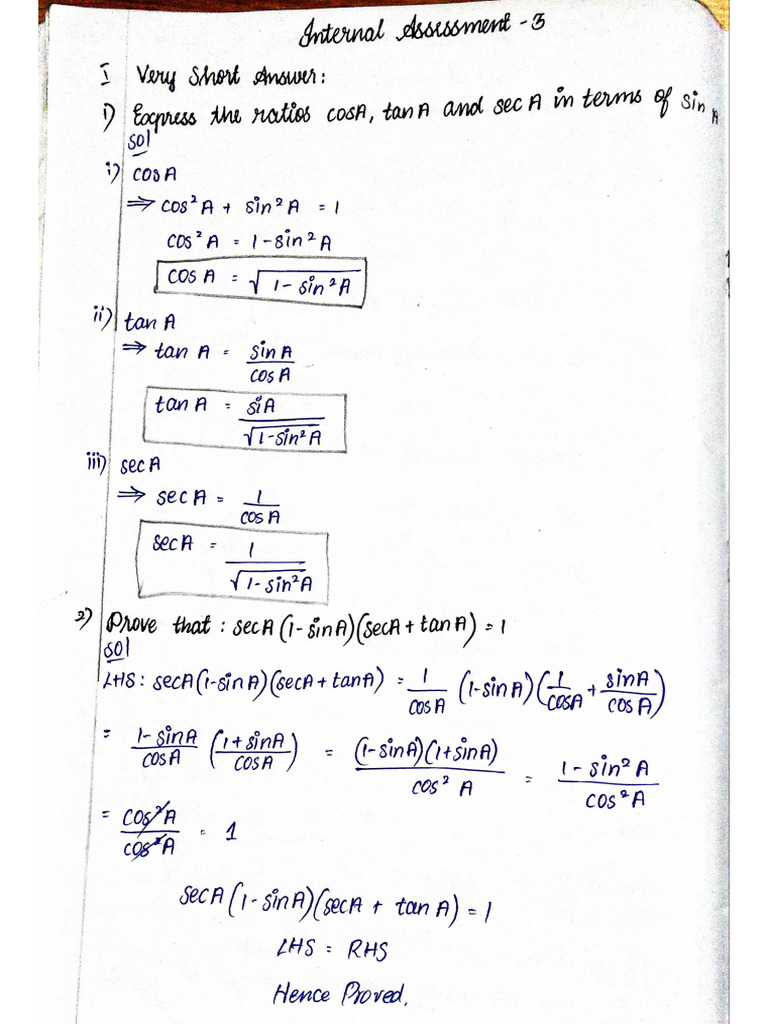 Internal Assessment - 3
I Very Short Answer:
1) Express the ratios cosA, tanA and secA in terms of sinA
sol
i) cosA
⇒ cos²A + sin²A = 1
cos²A = 1-sin²A
cosA = √1-sin²A
ii) tanA
⇒ tanA = sinA/cosA
tanA = siA/√1-sin²A
iii) secA
⇒ secA = 1/cosA
secA = 1/√1-sin²A
2) Prove that : secA(1-sinA)(secA+tanA)=1
sol
LHS: secA(1-sinA)(secA+tanA) = 1/cosA (1-sinA)(1/cosA + sinA/cosA)
= 1-sinA/cosA (1+sinA/cosA) = (1-sinA)(1+sinA)/cos²A = 1-sin²A/cos²A
= cos²A/cos²A = 1
secA(1-sinA)(secA+tanA)=1
LHS = RHS
Hence Proved.